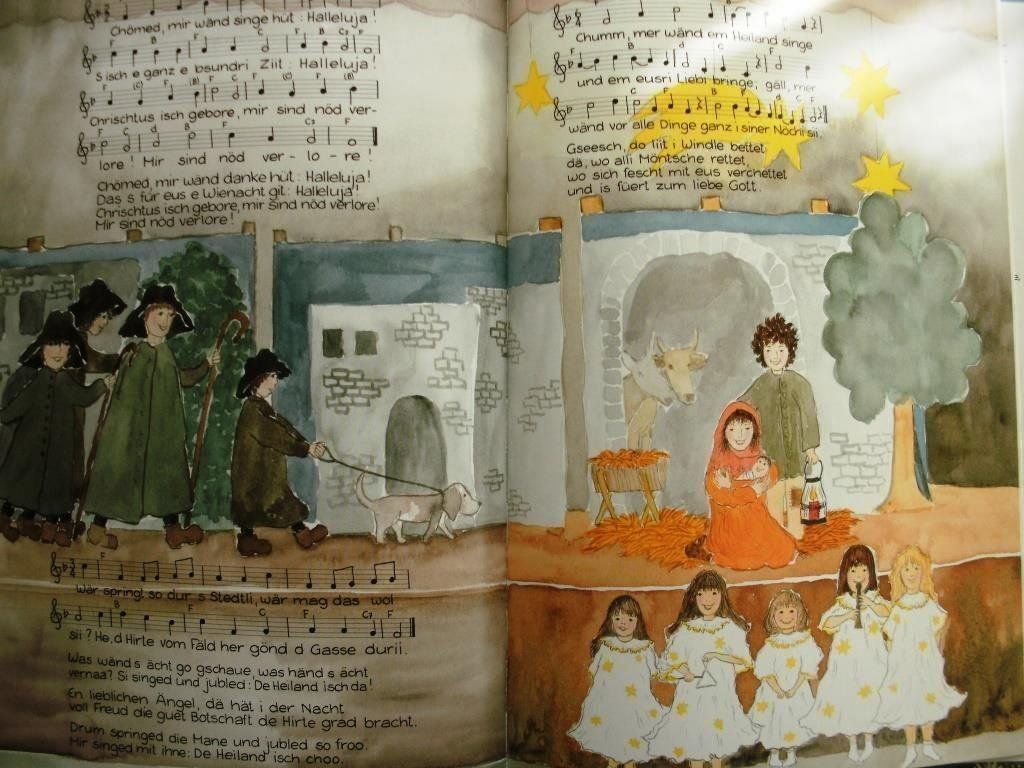 Chömed, mir wänd singe hüt : Halleluja !
F B, F C F B C7 F
S isch e ganz e bsundri Ziit : Halleluja !
F (C) F (B) F C F (C) F (B)
Chrischtus isch gebore, mir sind nöd ver-
F C d B F C7 F
lore ! Mir sind nöd ver - lo - re !
Chömed, mir wänd danke hüt : Halleluja !
Das s für eus e Wienacht git : Halleluja !
Chrischtus isch gebore, mir sind nöd verlore !
Mir sind nöd verlore !
F
Wär springt so dur s Stedtli, wär mag das wol
B F C F C7 F
sii ? He, d Hirte vom Fäld her gönd d Gasse durii.
Was wänd s ächt go gschaue, was händ s ächt
vernaa? Si singed und jubled : De Heiland isch da !
En lieblichen Ängel, dä hät i der Nacht
voll Freud die guet Botschaft de Hirte grad bracht.
Drum springed die Mane und jubled so froo.
Mir singed mit ihne : De Heiland isch choo.
Chumm, mer wänd em Heiland singe
und em eusri Liebi bringe, gäll, mer
wänd vor alle Dinge ganz i siner Nöchi sii.
Gseesch, do liit i Windle bettet
dä, wo alli Möntsche rettet,
wo sich fescht mit eus verchettet
und is füert zum liebe Gott.